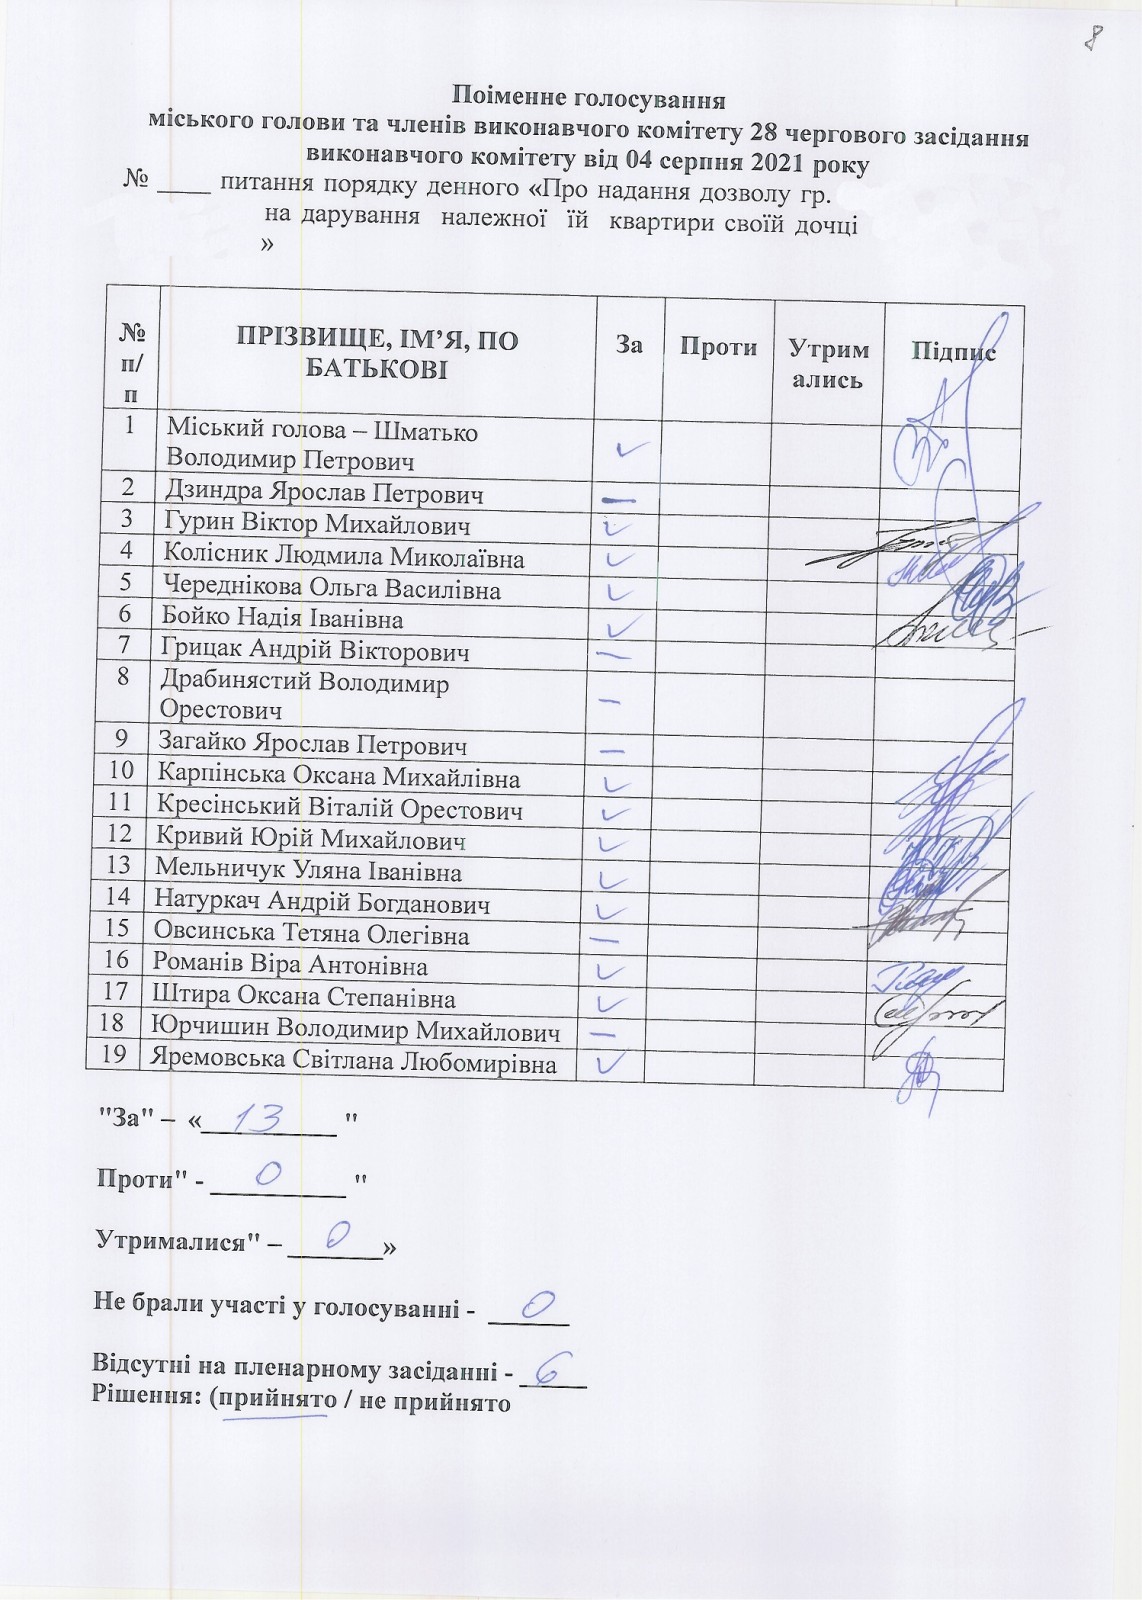 8
Поіменне голосування
міського голови та членів виконавчого комітету 28 чергового засідання
виконавчого комітету від 04 серпня 2021 року
№ ____ питання порядку денного «Про надання дозволу гр.
на дарування належної їй квартири своїй дочці
»
№ п/п ПРІЗВИЩЕ, ІМ’Я, ПО БАТЬКОВІ За Проти Утримались Підпис
1 Міський голова – Шматько
Володимир Петрович ✓
2 Дзиндра Ярослав Петрович –
3 Гурин Віктор Михайлович ✓
4 Колісник Людмила Миколаївна ✓
5 Череднікова Ольга Василівна ✓
6 Бойко Надія Іванівна ✓
7 Грицак Андрій Вікторович –
8 Драбинястий Володимир
Орестович –
9 Загайко Ярослав Петрович –
10 Карпінська Оксана Михайлівна ✓
11 Кресінський Віталій Орестович ✓
12 Кривий Юрій Михайлович ✓
13 Мельничук Уляна Іванівна ✓
14 Натуркач Андрій Богданович ✓
15 Овсинська Тетяна Олегівна –
16 Романів Віра Антонівна ✓
17 Штира Оксана Степанівна ✓
18 Юрчишин Володимир Михайлович –
19 Яремовська Світлана Любомирівна ✓
"За" – «13 "
Проти" - 0 "
Утрималися" – 0»
Не брали участі у голосуванні - 0
Відсутні на пленарному засіданні - 6
Рішення: (прийнято / не прийнято